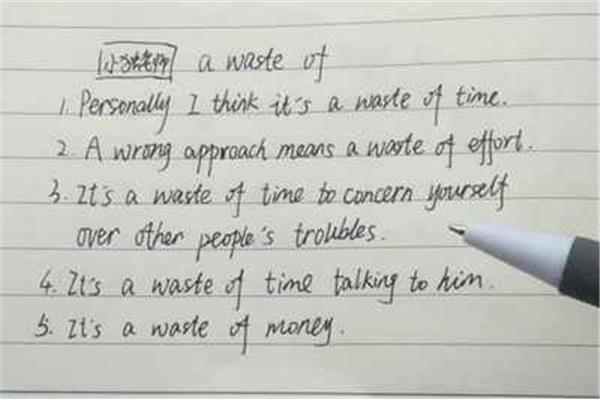 老师 a waste of
1. Personally I think it's a waste of time.
2. A wrong approach means a waste of effort.
3. It's a waste of time to concern yourself
over other people's troubles.
4. It's a waste of time talking to him.
5. It's a waste of money.